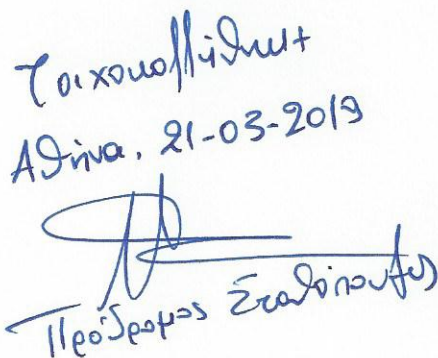 Τοιχοκολλήθηκε
Αθήνα, 21-03-2019
Πρόδρομος Σταθόπουλος